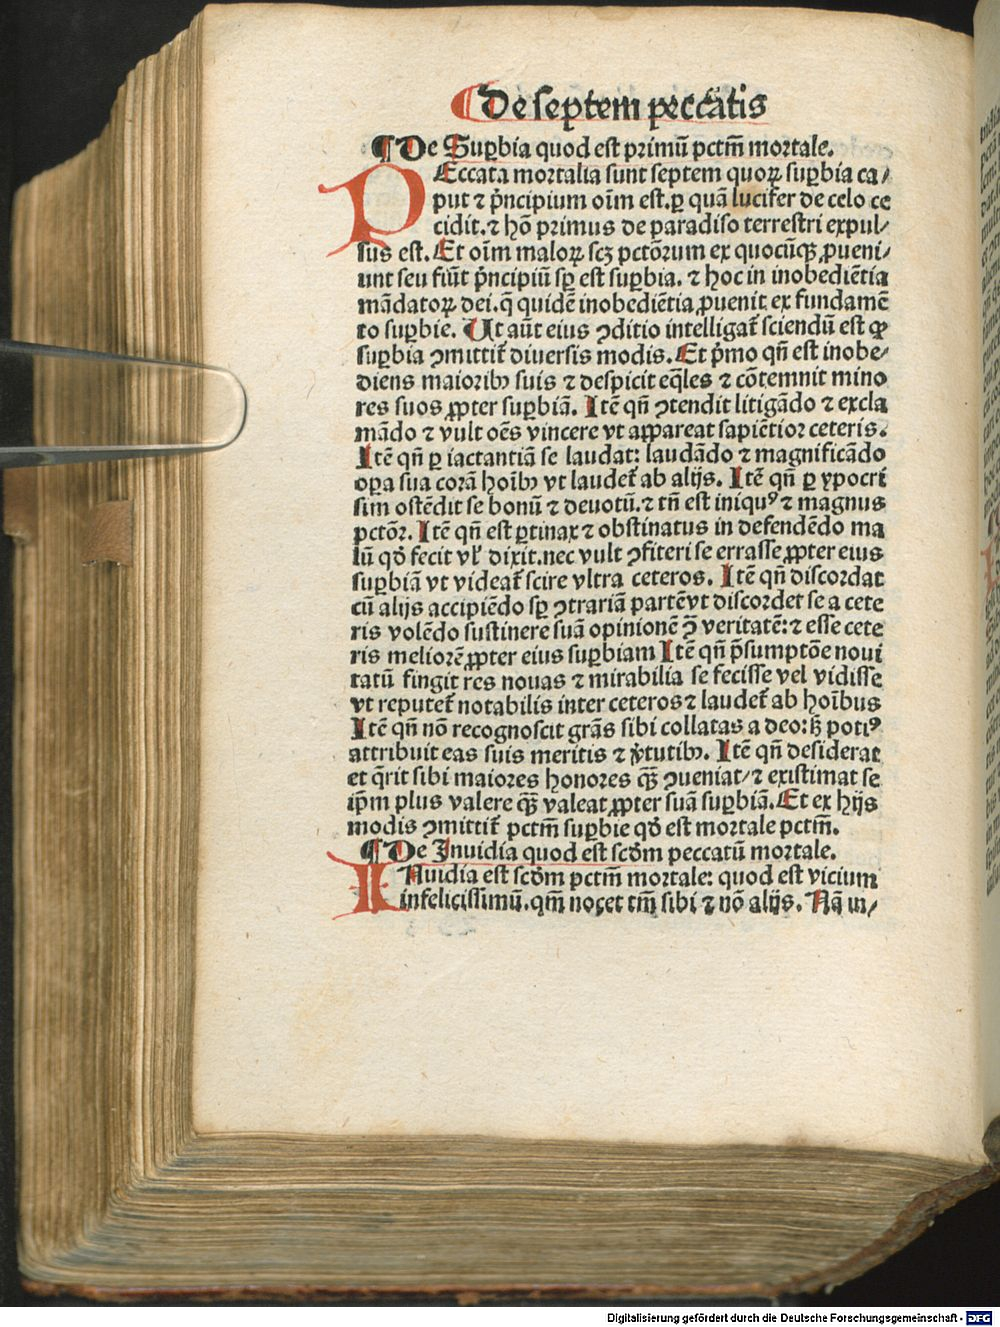 ¶ De septem peccatis
¶ De Suꝑbia quod est primū pctm̄ mortale.
PEccata mortalia sunt septem quoꝝ suꝑbia ca/
put ⁊ p̄ncipium oīm est. ꝑ quā lucifer de celo ce
cidit. ⁊ hō primus de paradiso terrestri expul/
sus est. Et oīm maloꝝ scꝫ pctōrum ex quocūqꝫ ꝓueni/
unt seu fiūt p̄ncipiū sꝑ est suꝑbia. ⁊ hoc in inobediētia
mādatoꝝ dei. q̄ quidē inobediētia ꝓuenit ex fundamē
to suꝑbie. Ut aūt eius ꝯditio intelligat᷑ sciendū est ꝙ
suꝑbia ꝯmittit᷑ diuersis modis. Et p̄mo qn̄ est inobe/
diens maioribꝫ suis ⁊ despicit eq̄les ⁊ cōtemnit mino
res suos ꝓpter suꝑbiā. Itē qn̄ ꝯtendit litigādo ⁊ excla
mādo ⁊ vult oēs vincere vt appareat sapiētior ceteris.
Itē qn̄ ꝑ iactantiā se laudat: laudādo ⁊ magnificādo
oꝑa sua corā hoībꝫ vt laudet᷑ ab alijs. Itē qn̄ ꝑ ypocri
sim ostēdit se bonū ⁊ deuotū. ⁊ tn̄ est iniquꝰ ⁊ magnus
pctōr. Itē qn̄ est ꝑtinax ⁊ obstinatus in defendēdo ma
lū qđ fecit vl̓ dixit. nec vult ꝯfiteri se errasse ꝓpter eius
suꝑbiā vt videat᷑ scire vltra ceteros. Itē qn̄ discordat
cū alijs accipiēdo sꝑ ꝯtrariā partē vt discordet se a cete
ris volēdo sustinere suā opinionē ꝯ̄ veritatē: ⁊ esse cete
ris meliorē ꝓpter eius suꝑbiam Itē qn̄ p̄sumptōe noui
tatū fingit res nouas ⁊ mirabilia se fecisse vel vidisse
vt reputet᷑ notabilis inter ceteros ⁊ laudet᷑ ab hoībus
Itē qn̄ nō recognoscit grās sibi collatas a deo: sꝫ potiꝰ
attribuit eas suis meritis ⁊ v̓tutibꝫ. Itē qn̄ desiderat
et q̄rit sibi maiores honores qꝫ̄ ꝯueniat/ ⁊ existimat se
ip̄m plus valere qꝫ̄ valeat ꝓpter suā suꝑbiā. Et ex hijs
modis ꝯmittit᷑ pctm̄ suꝑbie qđ est mortale pctm̄.
¶ De Inuidia quod est scđm peccatū mortale.
INuidia est scđm pctm̄ mortale: quod est vicium
infelicissimū. qm̄ nocet tm̄ sibi ⁊ nō alijs. Nā in/
Digitalisierung gefördert durch die Deutsche Forschungsgemeinschaft - DFG